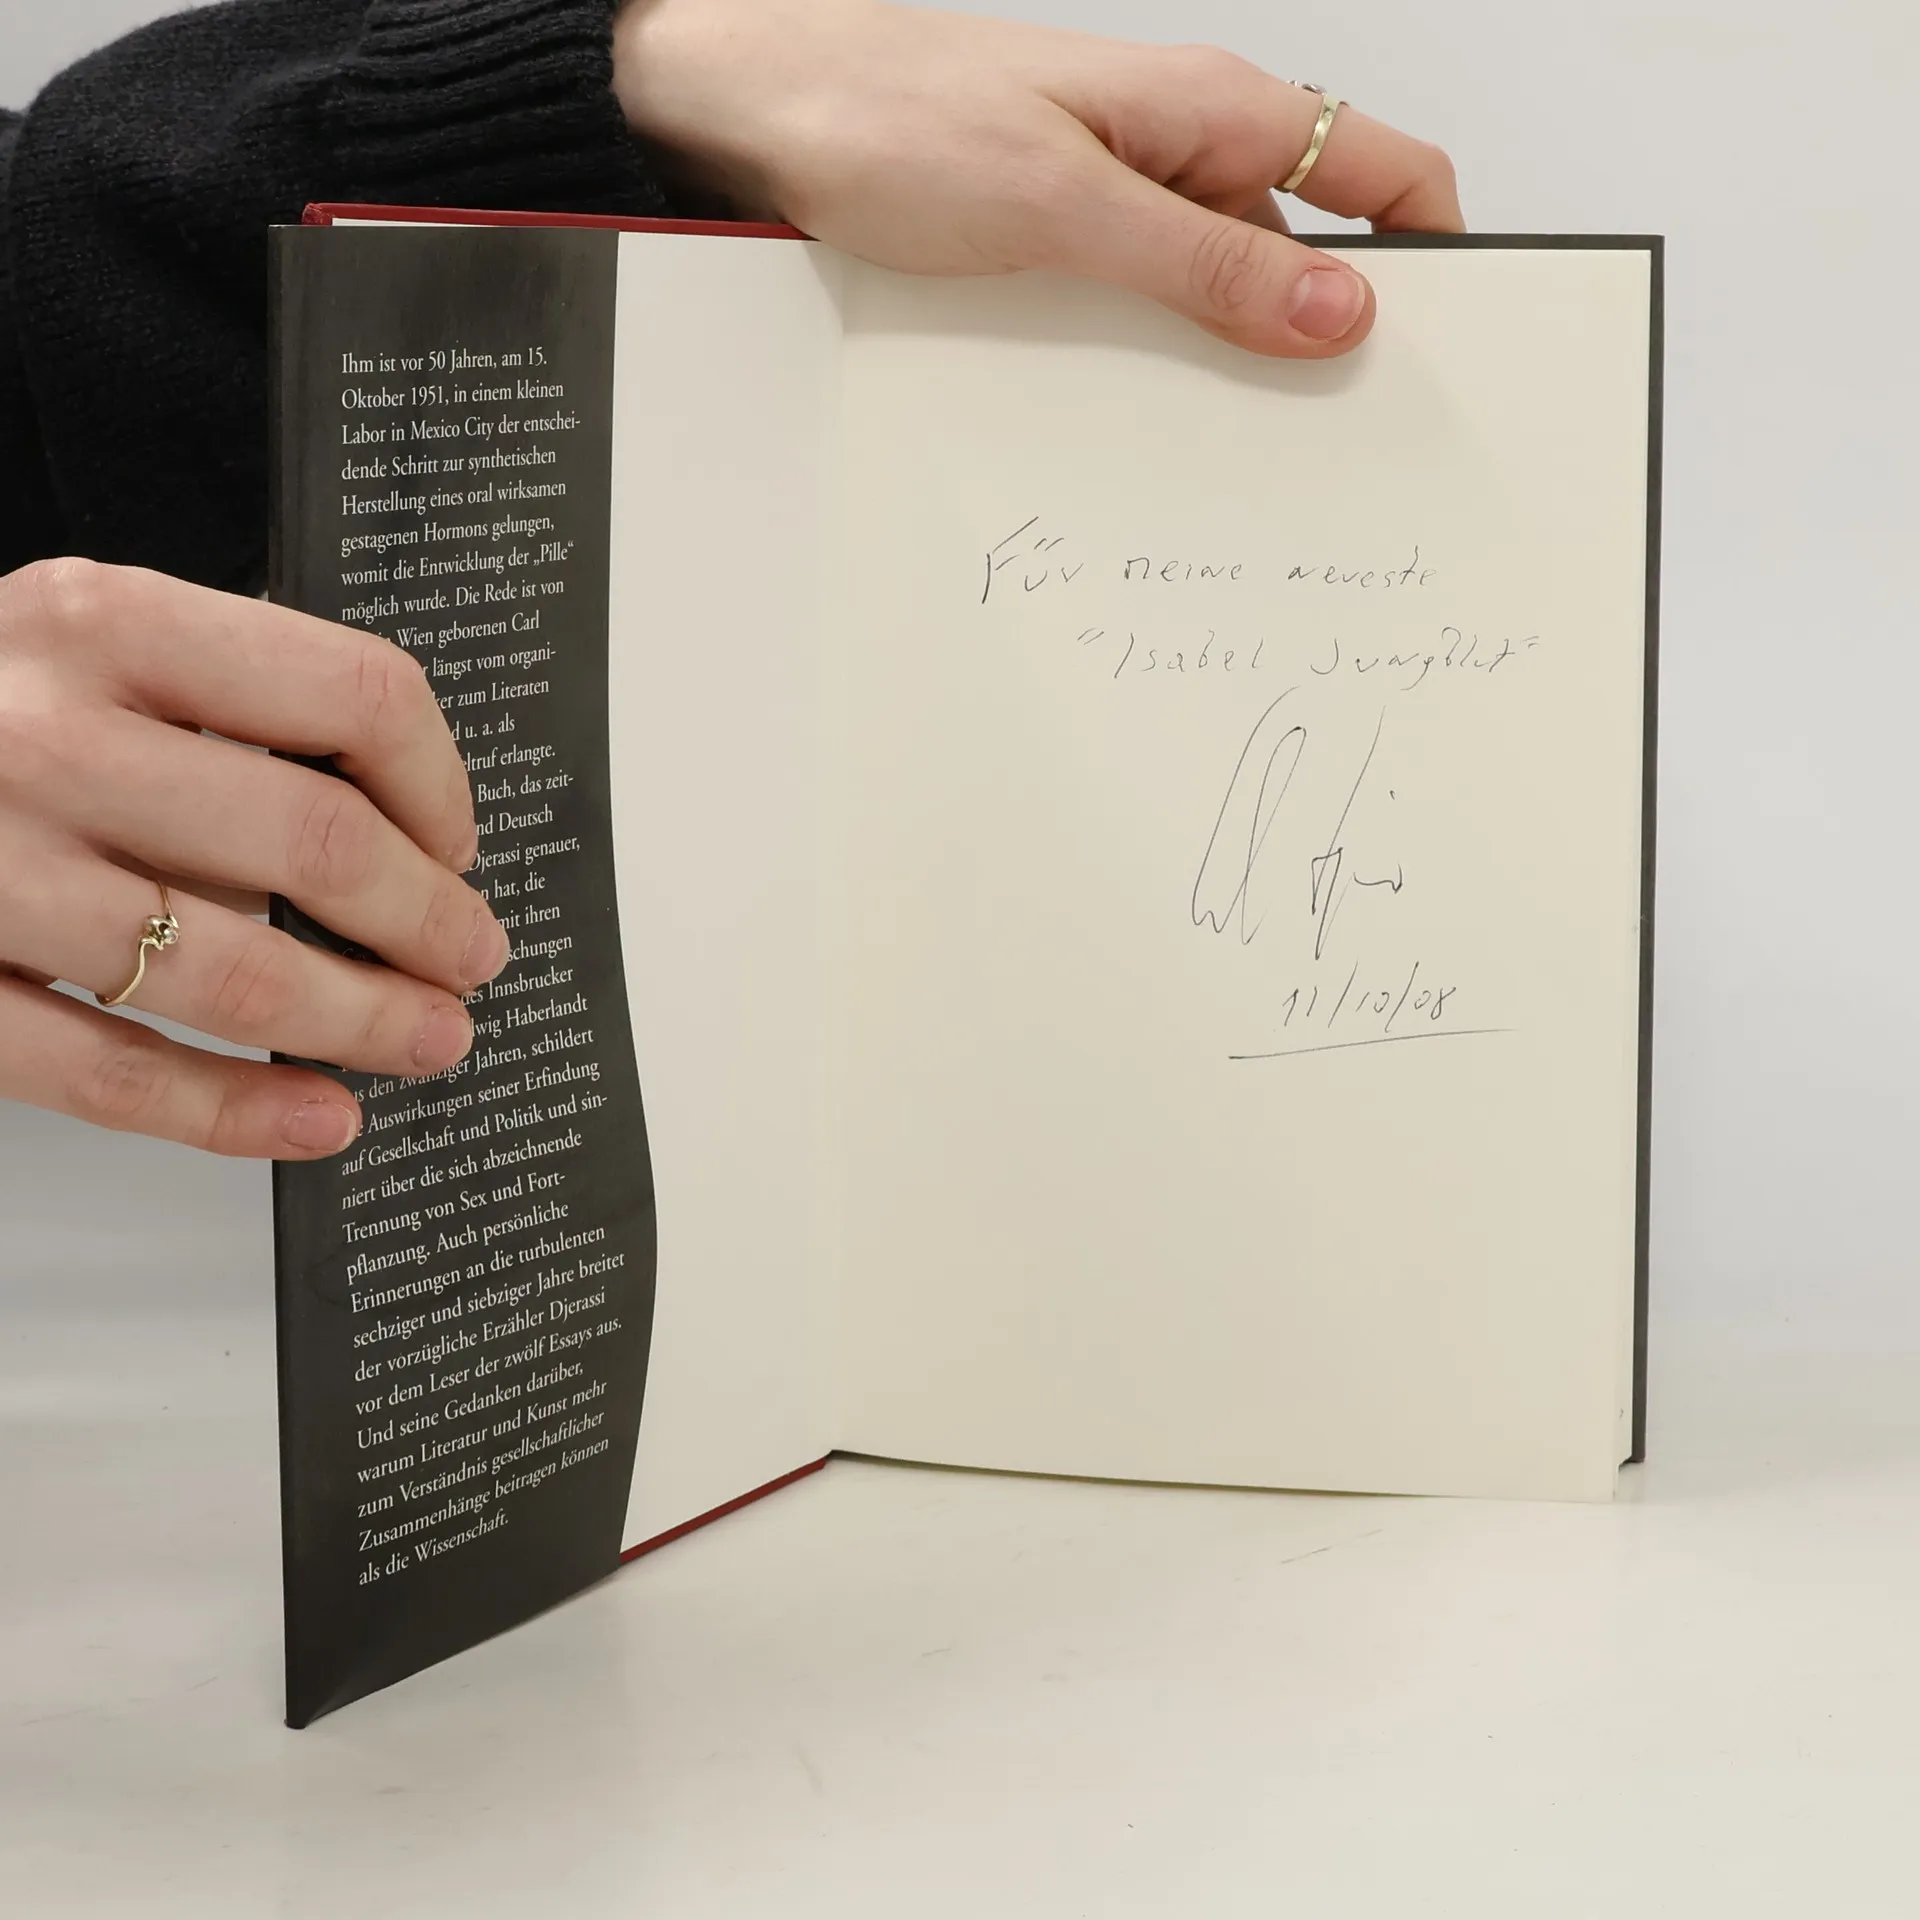 Ihm ist vor 50 Jahren, am 15.
Oktober 1951, in einem kleinen
Labor in Mexico City der entschei-
dende Schritt zur synthetischen
Herstellung eines oral wirksamen
gestagenen Hormons gelungen,
womit die Entwicklung der „Pille“
möglich wurde. Die Rede ist von
Wien geborenen Carl
längst vom organi-
zum Literaten
u. a. als
erlangte.
Buch, das zeit-
Deutsch
Djerassi genauer,
hat, die
mit ihren
Innsbrucker
Haberlandt
den zwanziger Jahren, schildert
Auswirkungen seiner Erfindung
auf Gesellschaft und Politik und sin-
niert über die sich abzeichnende
Trennung von Sex und Fort-
pflanzung. Auch persönliche
Erinnerungen an die turbulenten
sechziger und siebziger Jahre breitet
der vorzügliche Erzähler Djerassi
vor dem Leser der zwölf Essays aus.
Und seine Gedanken darüber,
warum Literatur und Kunst mehr
zum Verständnis gesellschaftlicher
Zusammenhänge beitragen können
als die Wissenschaft.
Für meine neueste
"Isabel Jungblut"
11/10/08